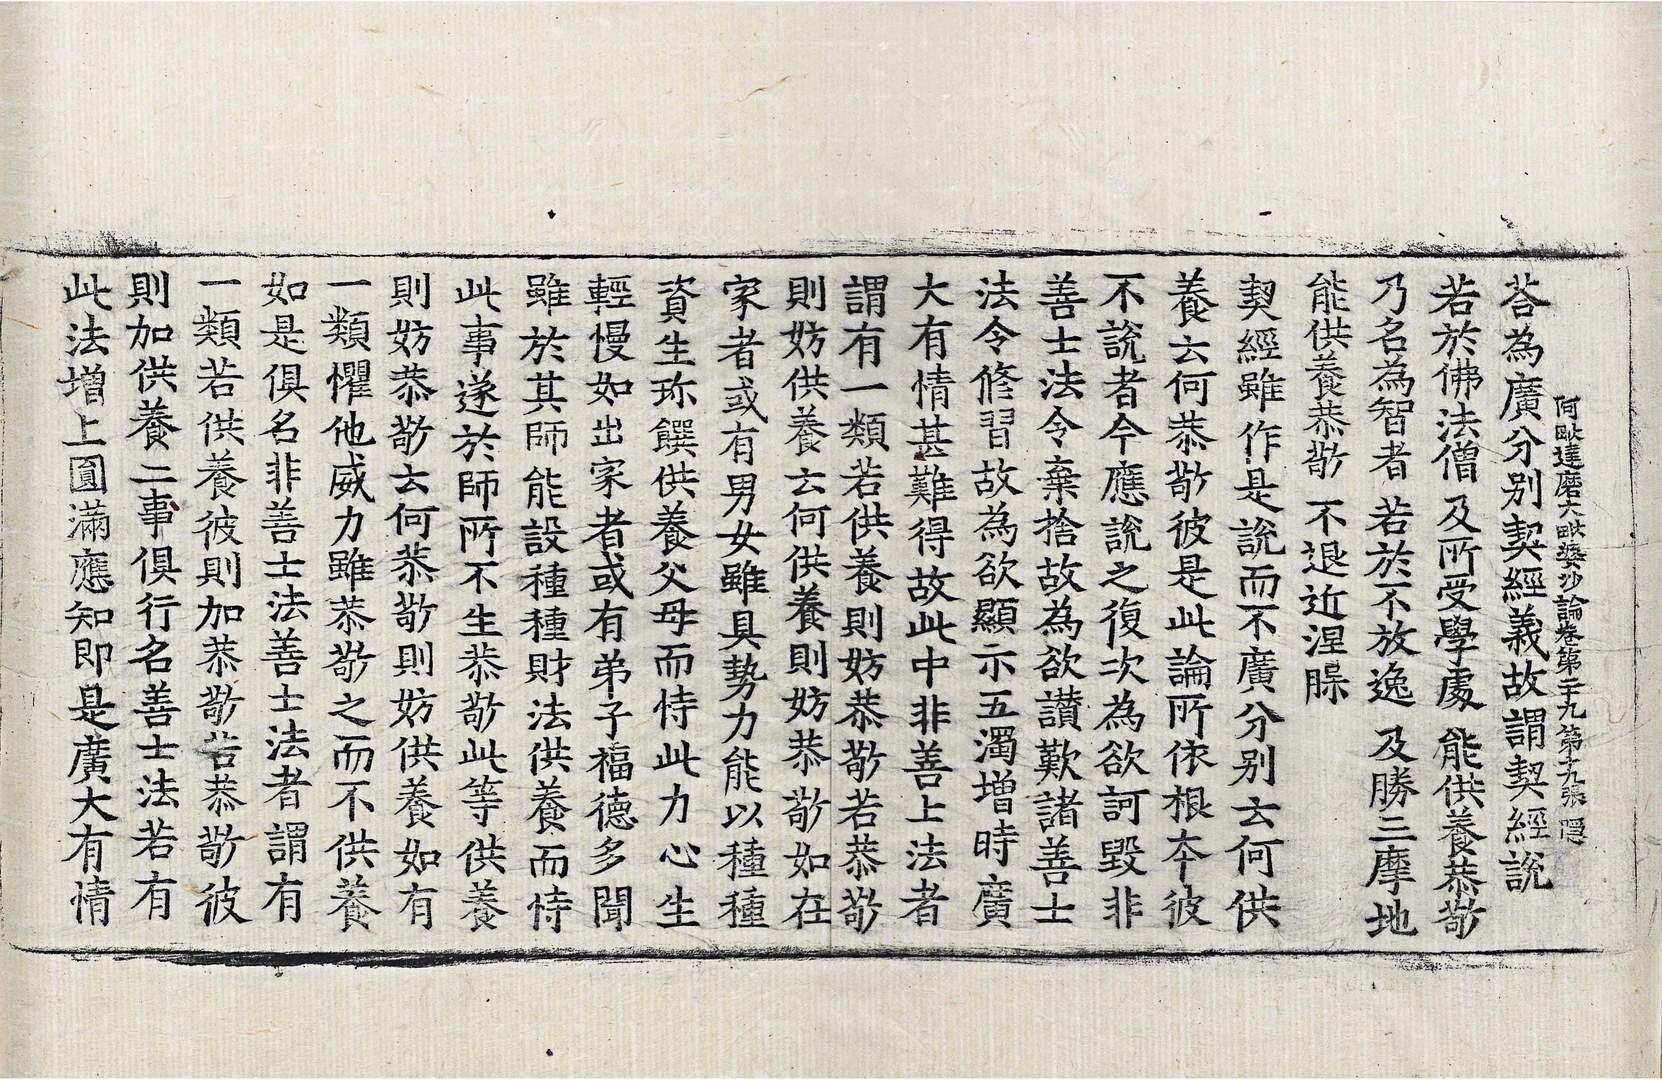 阿毗達磨大毗婆沙論卷第二十九 第十九張 隱
荅為廣分別契經義故謂契經說
若於佛法僧 及所受學處 能供養恭敬
乃名為智者 若於不放逸 及勝三摩地
能供養恭敬 不退近涅槃
契經雖作是說而不廣分別云何供
養云何恭敬彼是此論所依根本彼
不說者今應說之復次為欲訶毀非
善士法令棄捨故為欲讚歎諸善士
法令修習故為欲顯示五濁增時廣
大有情甚難得故此中非善士法者
謂有一類若供養則妨恭敬若恭敬
則妨供養云何供養則妨恭敬如在
家者或有男女雖具勢力能以種種
資生珎饌供養父母而恃此力心生
輕慢如出家者或有弟子福德多聞
雖於其師能設種種財法供養而恃
此事遂於師所不生恭敬此等供養
則妨恭敬云何恭敬則妨供養如有
一類懼他威力雖恭敬之而不供養
如是俱名非善士法善士法者謂有
一類若供養彼則加恭敬若恭敬彼
則加供養二事俱行名善士法若有
此法增上圓滿應知即是廣大有情